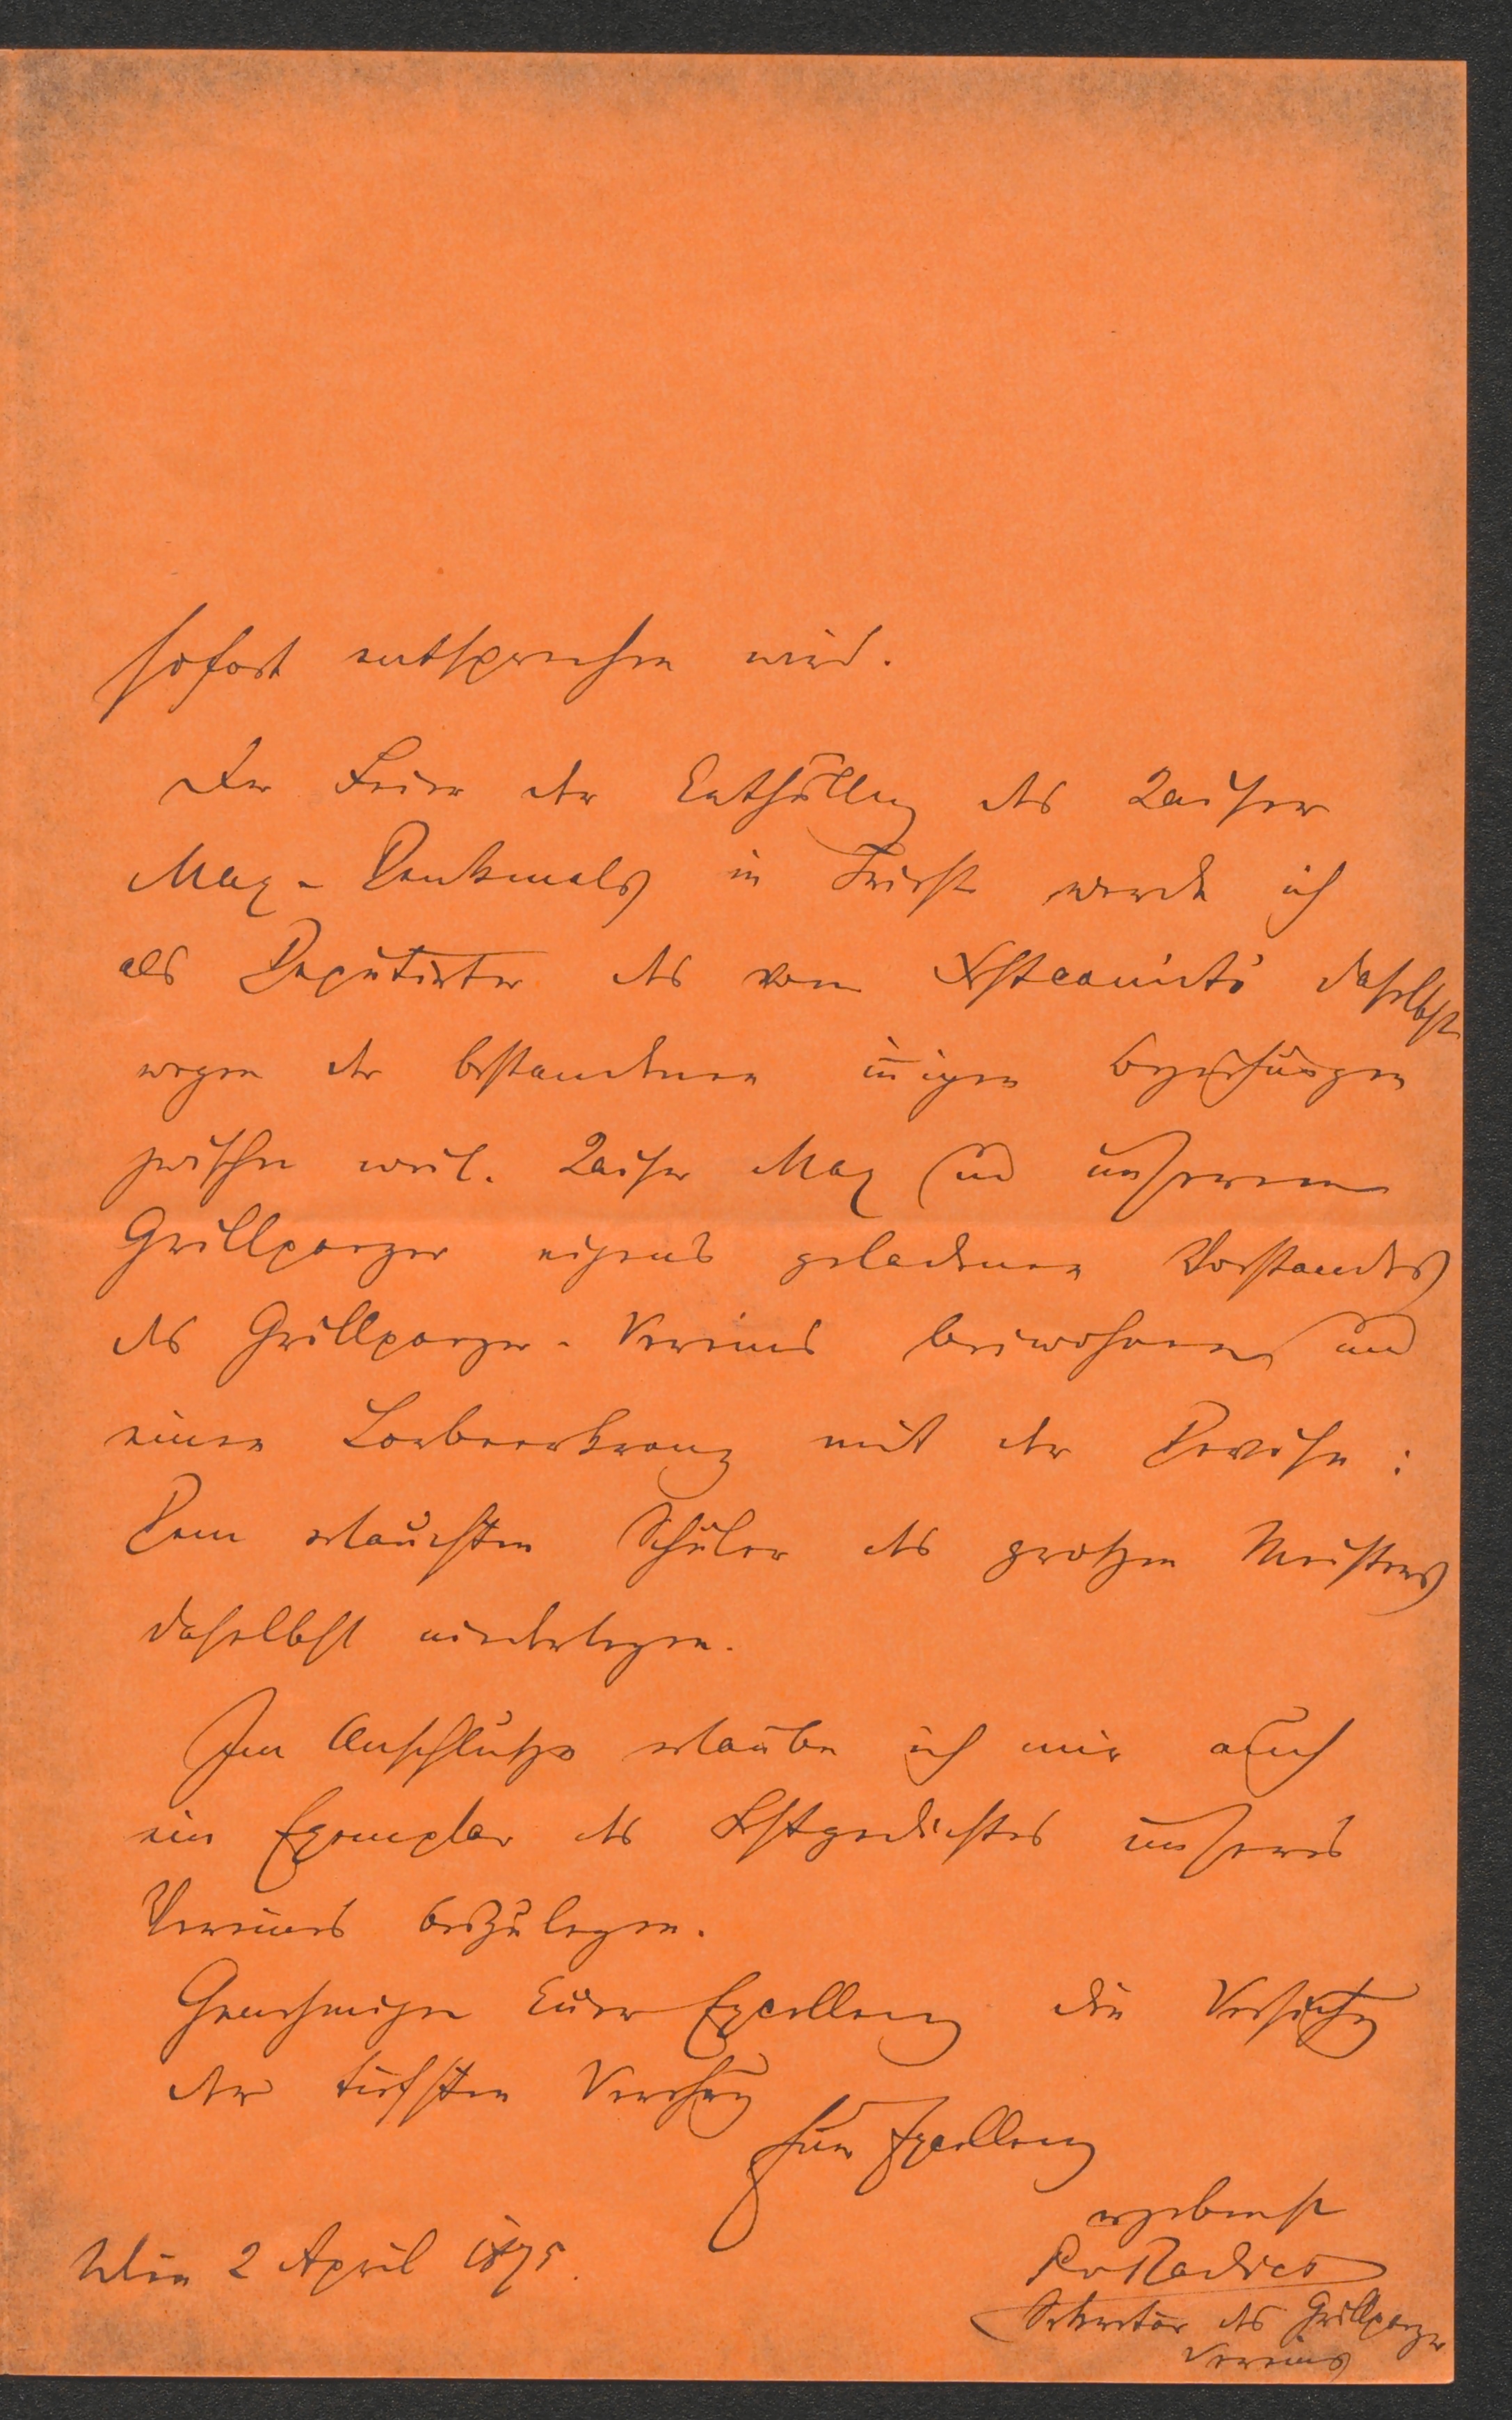 sofort entsprechen wird.
Der Feier der Enthüllung des Kaiser
Max-Denkmals in Triest werde ich
als Deputirter des vom Festcomité daselbst
wegen der bestandenen innigen Beziehungen
zwischen weil. Kaiser Max und unserem
Grillparzer eigens geladenen Vorstandes
des Grillparzer-Vereins beiwohnen und
einen Lorbeerkranz mit der Devise:
Dem erlauchten Schüler des großen Meisters
daselbst niederlegen.
Im Anschluße erlaube ich mir auch
ein Exemplar des Festgedichtes unseres
Vereines beizulegen.
Genehmigen Euer Excellenz die Versicherung
der tiefsten Verehrung
Euer Excellenz
ergebenst
PvRadics
Sekretär des Grillparzer
Vereins
Wien 2 April 1875.